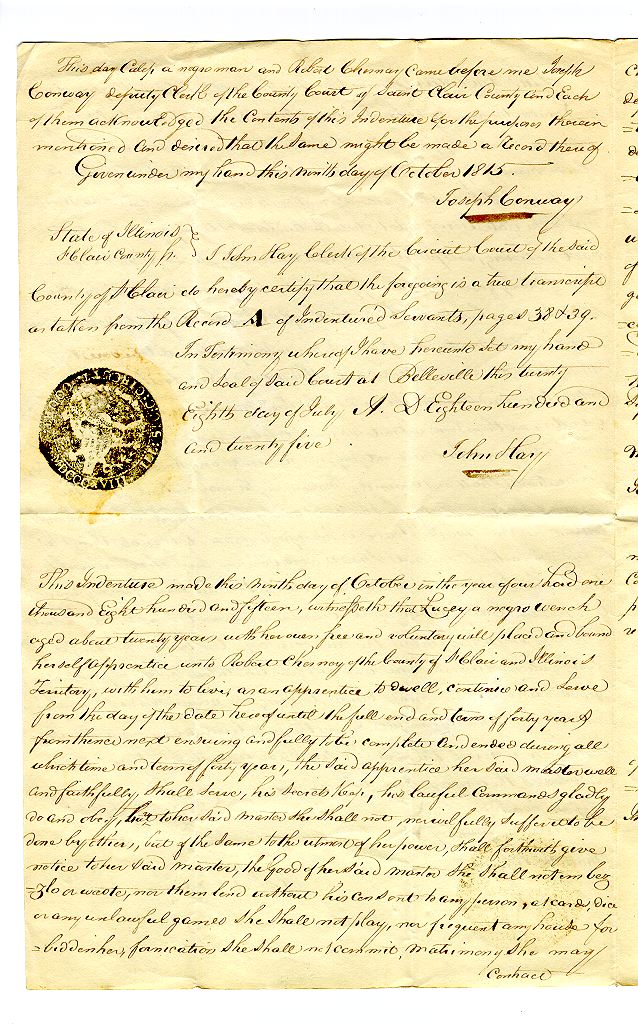 This day Caleb a negro man and Robert Chesnay Came before me Joseph
Conway deputy Clerk of the County Court of Saint Clair County and Each
of them acknowledged the Contents of this Indenture for the purposes therein
mentioned and desired that the Same might be made a Record there of
Given under my hand this ninth day of October 1815.
Joseph Conway
State of Illinois
St Clair County ss.
I John Hay Clerk of the Circuit Court of the Said
County of St Clair do hereby certify that the forgoing is a true transcript
as taken from the Record A of Indentured Servants, pages 38 & 39.
In Testimony whereof I have hereunto Set my hand
and Seal of Said Court at Belleville this twenty
Eighth day of July A. D Eighteen hundred and
and twenty five
John Hay
This Indenture made this ninth day of October in the year of our Lord one
thousand Eight hundred and fifteen, witnesseth that Lucey a negro wench
aged about twenty years with her own free and voluntary will placed and bound
herself apprentice unto Robert Chesnay of the County of St Clair and Illinois
Territory, with him to live, as an apprentice to dwell, continue and Serve
from the day of the date hereof until the full end and term of forty years
from thence next ensuing and fully to be complete and ended during all
which time and term of forty years, the Said apprentice her Said master well
and faithfully Shall Serve, his secrets keep, his lawful Commands gladly
do and obey, hurt to her Said master She Shall not, nor wilfully suffer it to be
done by others, but of the Same to the utmost of her power, Shall forthwith give
notice to her Said master, the good of her Said master She Shall not embez
=zle or waste, nor them lend without his consent to any person, at cards, dice
or any unlawful games She Shall not play, nor frequent any house for
=bidden her, fornication She Shall not commit, matrimony She may
Contract